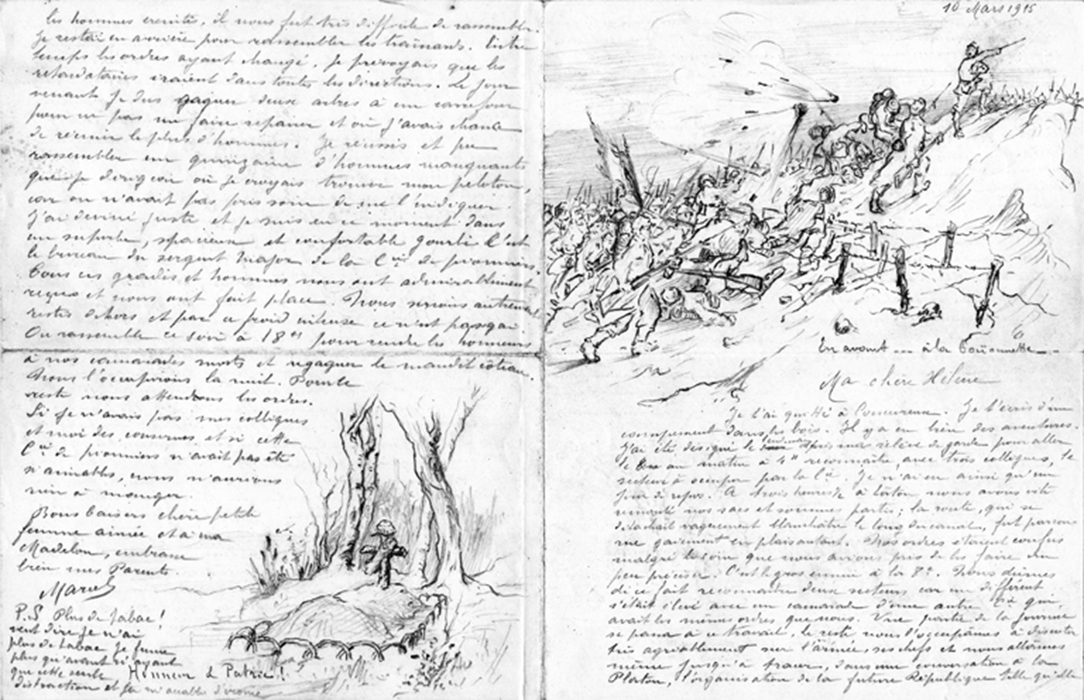 10 Mars 1915
En avant ... à la baïonnette ...
Ma chère Hélène
Je t'ai quitté à . Je t'écris d'une
campement dans les bois. Il y a eu bien des aventures.
J'ai été désigné le relève de garde pour aller
le au matin à 4h reconnaître, avec trois collègues, le
secteur à occuper par la Cie. Je n'ai eu ainsi qu'un
peu de repos. A trois heures à tâton nous avons été
nos sacs et sommes partis ; la route, qui se
détachait vaguement blanchâtre le long du canal, fut parcou
rue gaiement en plaisantant. Nos ordres étaient confus
malgré le soin que nous avions pris de les faire un
peu préciser. C'est le gros ennui à la 8e. Nous dûmes
de ce fait reconnaître deux secteurs car un différent
s'était élevé avec un camarade d'une autre Cie qui
avait les mêmes ordres que nous. Une partie de la journée
se passa à ce travail, le reste nous l'occupâmes à discuter
très agréablement sur l'armée, ses chefs et nous allâmes
même jusqu'à , dans une conversation à la
Platon, l'organisation de la future République telle qu'elle
les hommes éreintés, il nous fut très difficile de rassembler.
Je restai en arrière pour rassembler les traînards. Entre
temps les ordres ayant changé, je prévoyais que les
retardataires iraient dans toutes les directions. Le jour
venant je dus gagner deux arbres à un carrefour
pour ne pas me faire repérer et où j'avais chance
de réunir le plus d'hommes. Je réussis et pu
rassembler une quinzaine d'hommes manquants
que je dirigeai où je croyais trouver mon peloton,
car on n'avait pas pris soin de me l'indiquer
J'ai deviné juste et je suis en ce moment dans
un superbe, spacieux et confortable gourbi. C'est
le bureau du sergent major de la Cie de pionniers.
Tous ces gradés et hommes nous ont admirablement
reçus et nous ont fait place. Nous serions autrement
restés dehors et par ce froid ce n'est pas gai
On rassemble ce soir à 18h pour rendre les honneurs
à nos camarades morts et regagner le maudit côteau.
Nous l'occuperons la nuit.
reste nous attendrons les ordres.
Si je n'avais pas mes collègues
et moi des conserves, et si cette
Cie de pionniers n'avait pas été
si aimables, nous n'aurions
rien à manger.
Bons baisers chère petite
femme aimée et à ma
Madelon, embrasse
bien mes Parents.
Marcel
P.S Plus de tabac !
veut dire je n'ai
plus de tabac. Je fume
plus qu'avant n'ayant
que cette seule
distraction et je
Honneur & Patrie !